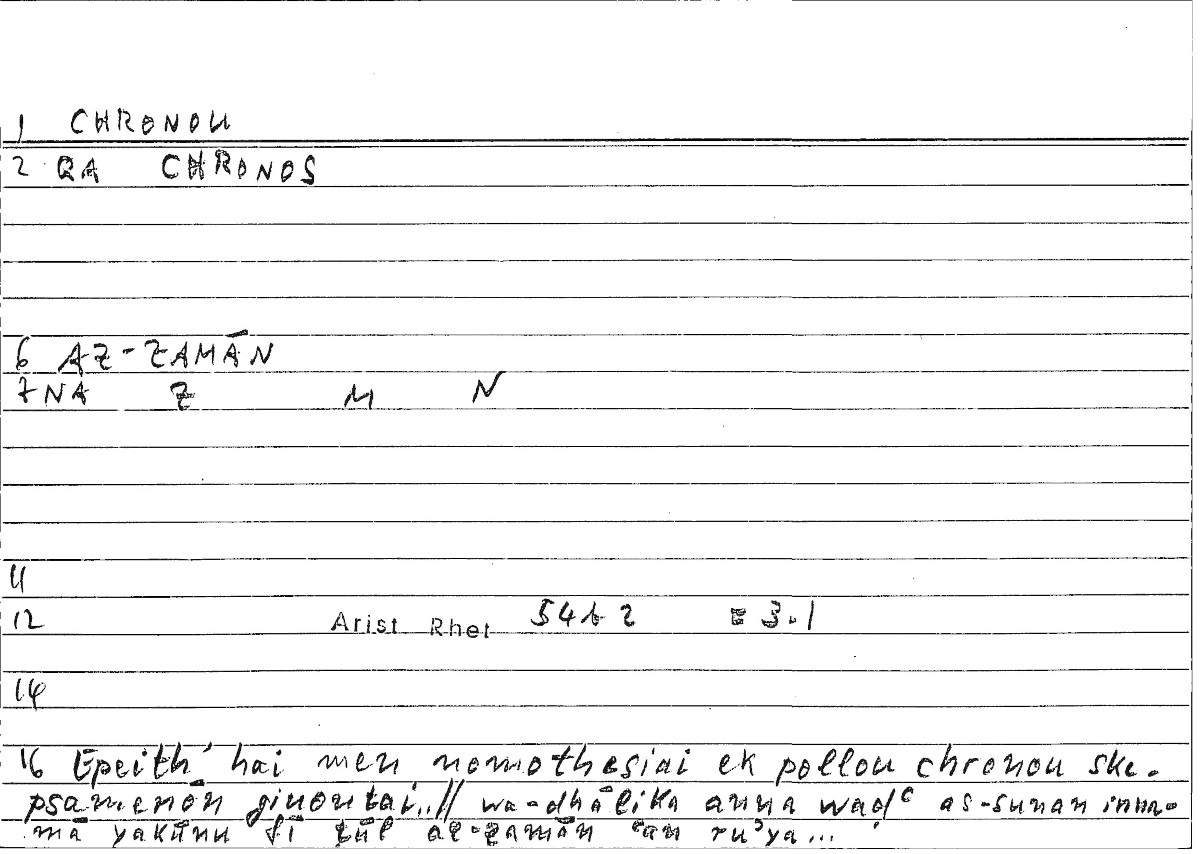 1 CHRONOU
2 QA CHRONOS
6 AZ-ZAMĀN
7 NA Z M N
11
12 Arist Rhet 54b2 = 3.1
14
16 Epeith' hai men nomothesiai ek pollou chronou ske-
psamenōn ginontai..// wa-dhālika anna waḍʿ as-sunan inna-
mā yakūnu fī ṭūl az-zamān ʿan ruʾya...